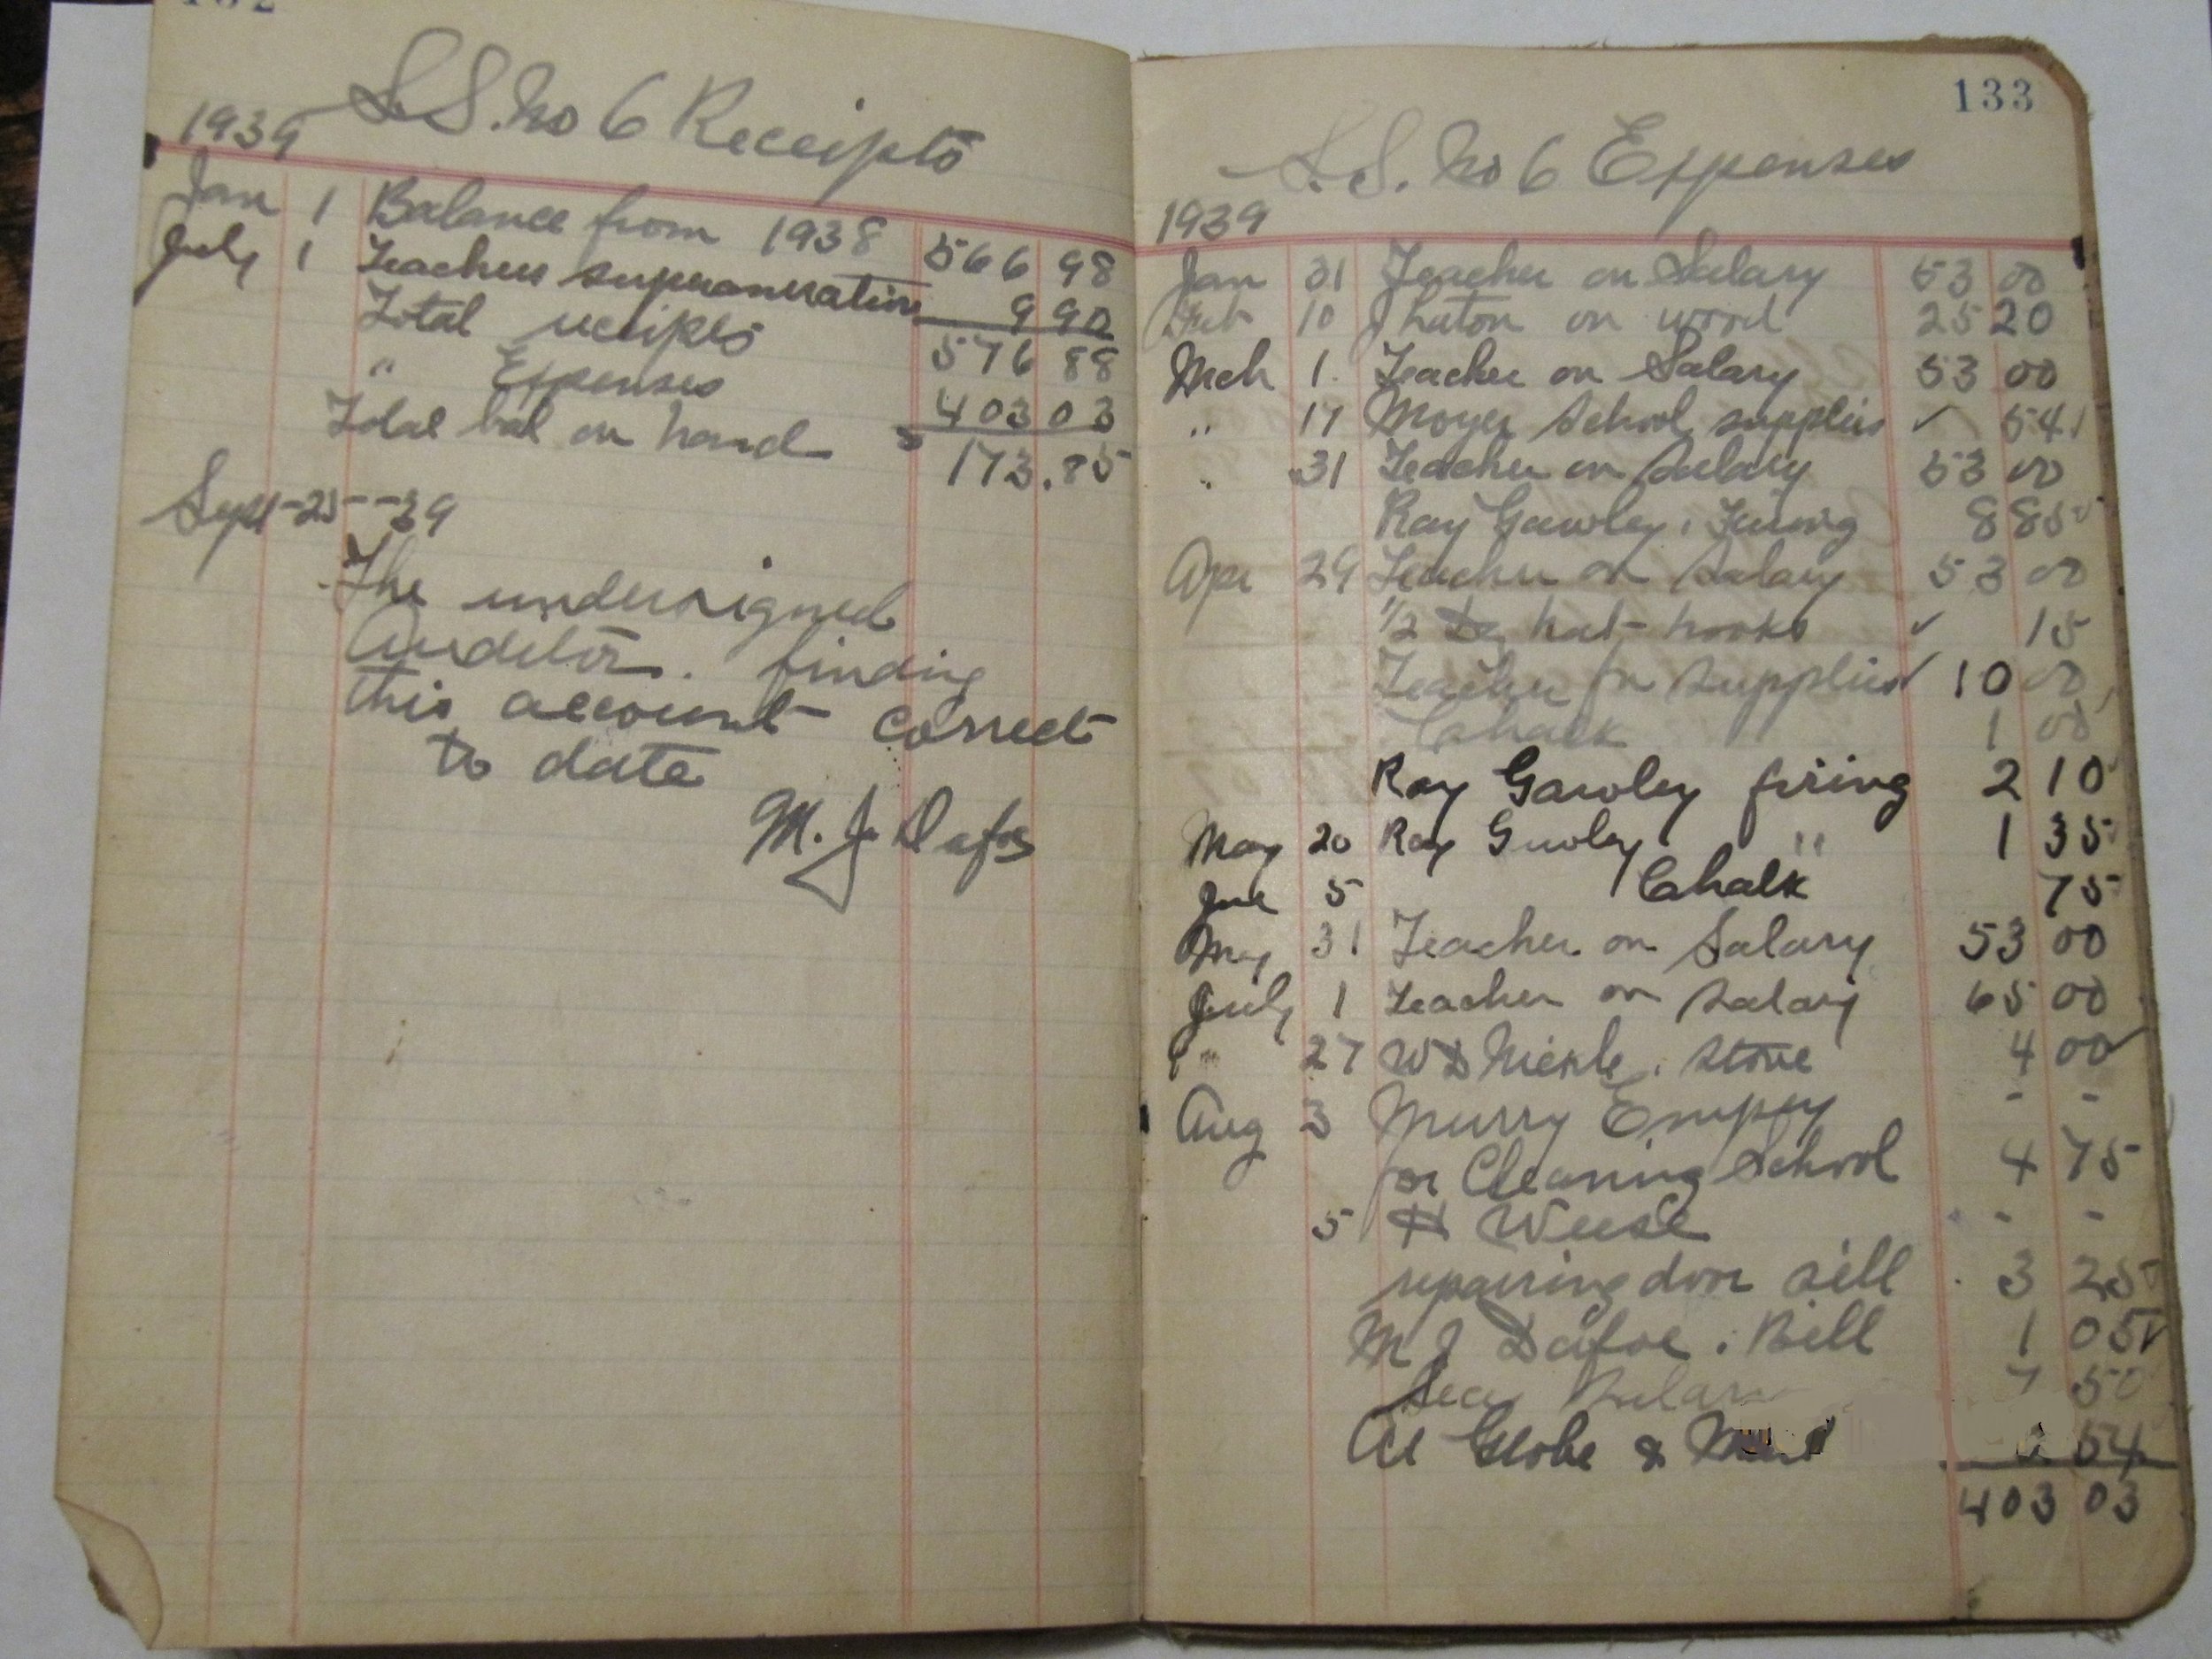 132
S.S. No 6 Receipts
1939
Jan 1 Balance from 1938 566 98
July 1 Teachers superannuation 9 90
Total receipts 576 88
" Expenses 403 03
Total bal on hand 173.85
Sept-25--39
The undersigned
Auditor. finding
this account correct
to date
M. J. Dafoe
133
S.S. No 6 Expenses
1939
Jan 31 Teacher on Salary 53 00
10 on wood 25 20
Mch 1. Teacher on Salary 53 00
" 17 Moyer School supplies ✓ 5 41
" 31 Teacher on Salary 53 00
Ray Gawley. Firing 8 85
Apr 29 Teacher on Salary 53 00
1/2 Dz hat hooks ✓ 15
Teacher for supplies ✓ 10 00
Chalk 1 00
Ray Gawley firing 2 10
May 20 Ray Gawley " 1 35
June 5 Chalk 75
May 31 Teacher on Salary 53 00
July 1 Teacher on Salary 65 00
" 27 W D Nickle. stove 4 00 ✓
Aug 3 Murry Empey - -
for Cleaning School 4 75
5 H Weese - -
repairing door sill 3 25
M J Dafoe. Bill 1 05
Secy Salary 7 50
Globe & 54
403 03